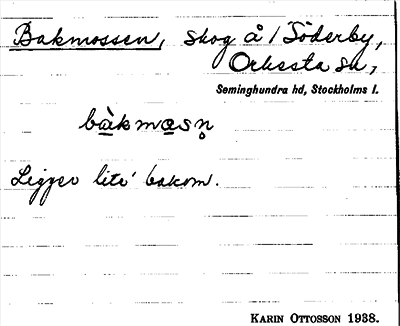 Bakmossen, skog å / Söderby,
Orkesta sn,
Seminghundra hd, Stockholms l.
bàkmɷsn̥
Ligger lite' bakom.
KARIN OTTOSSON 1938.